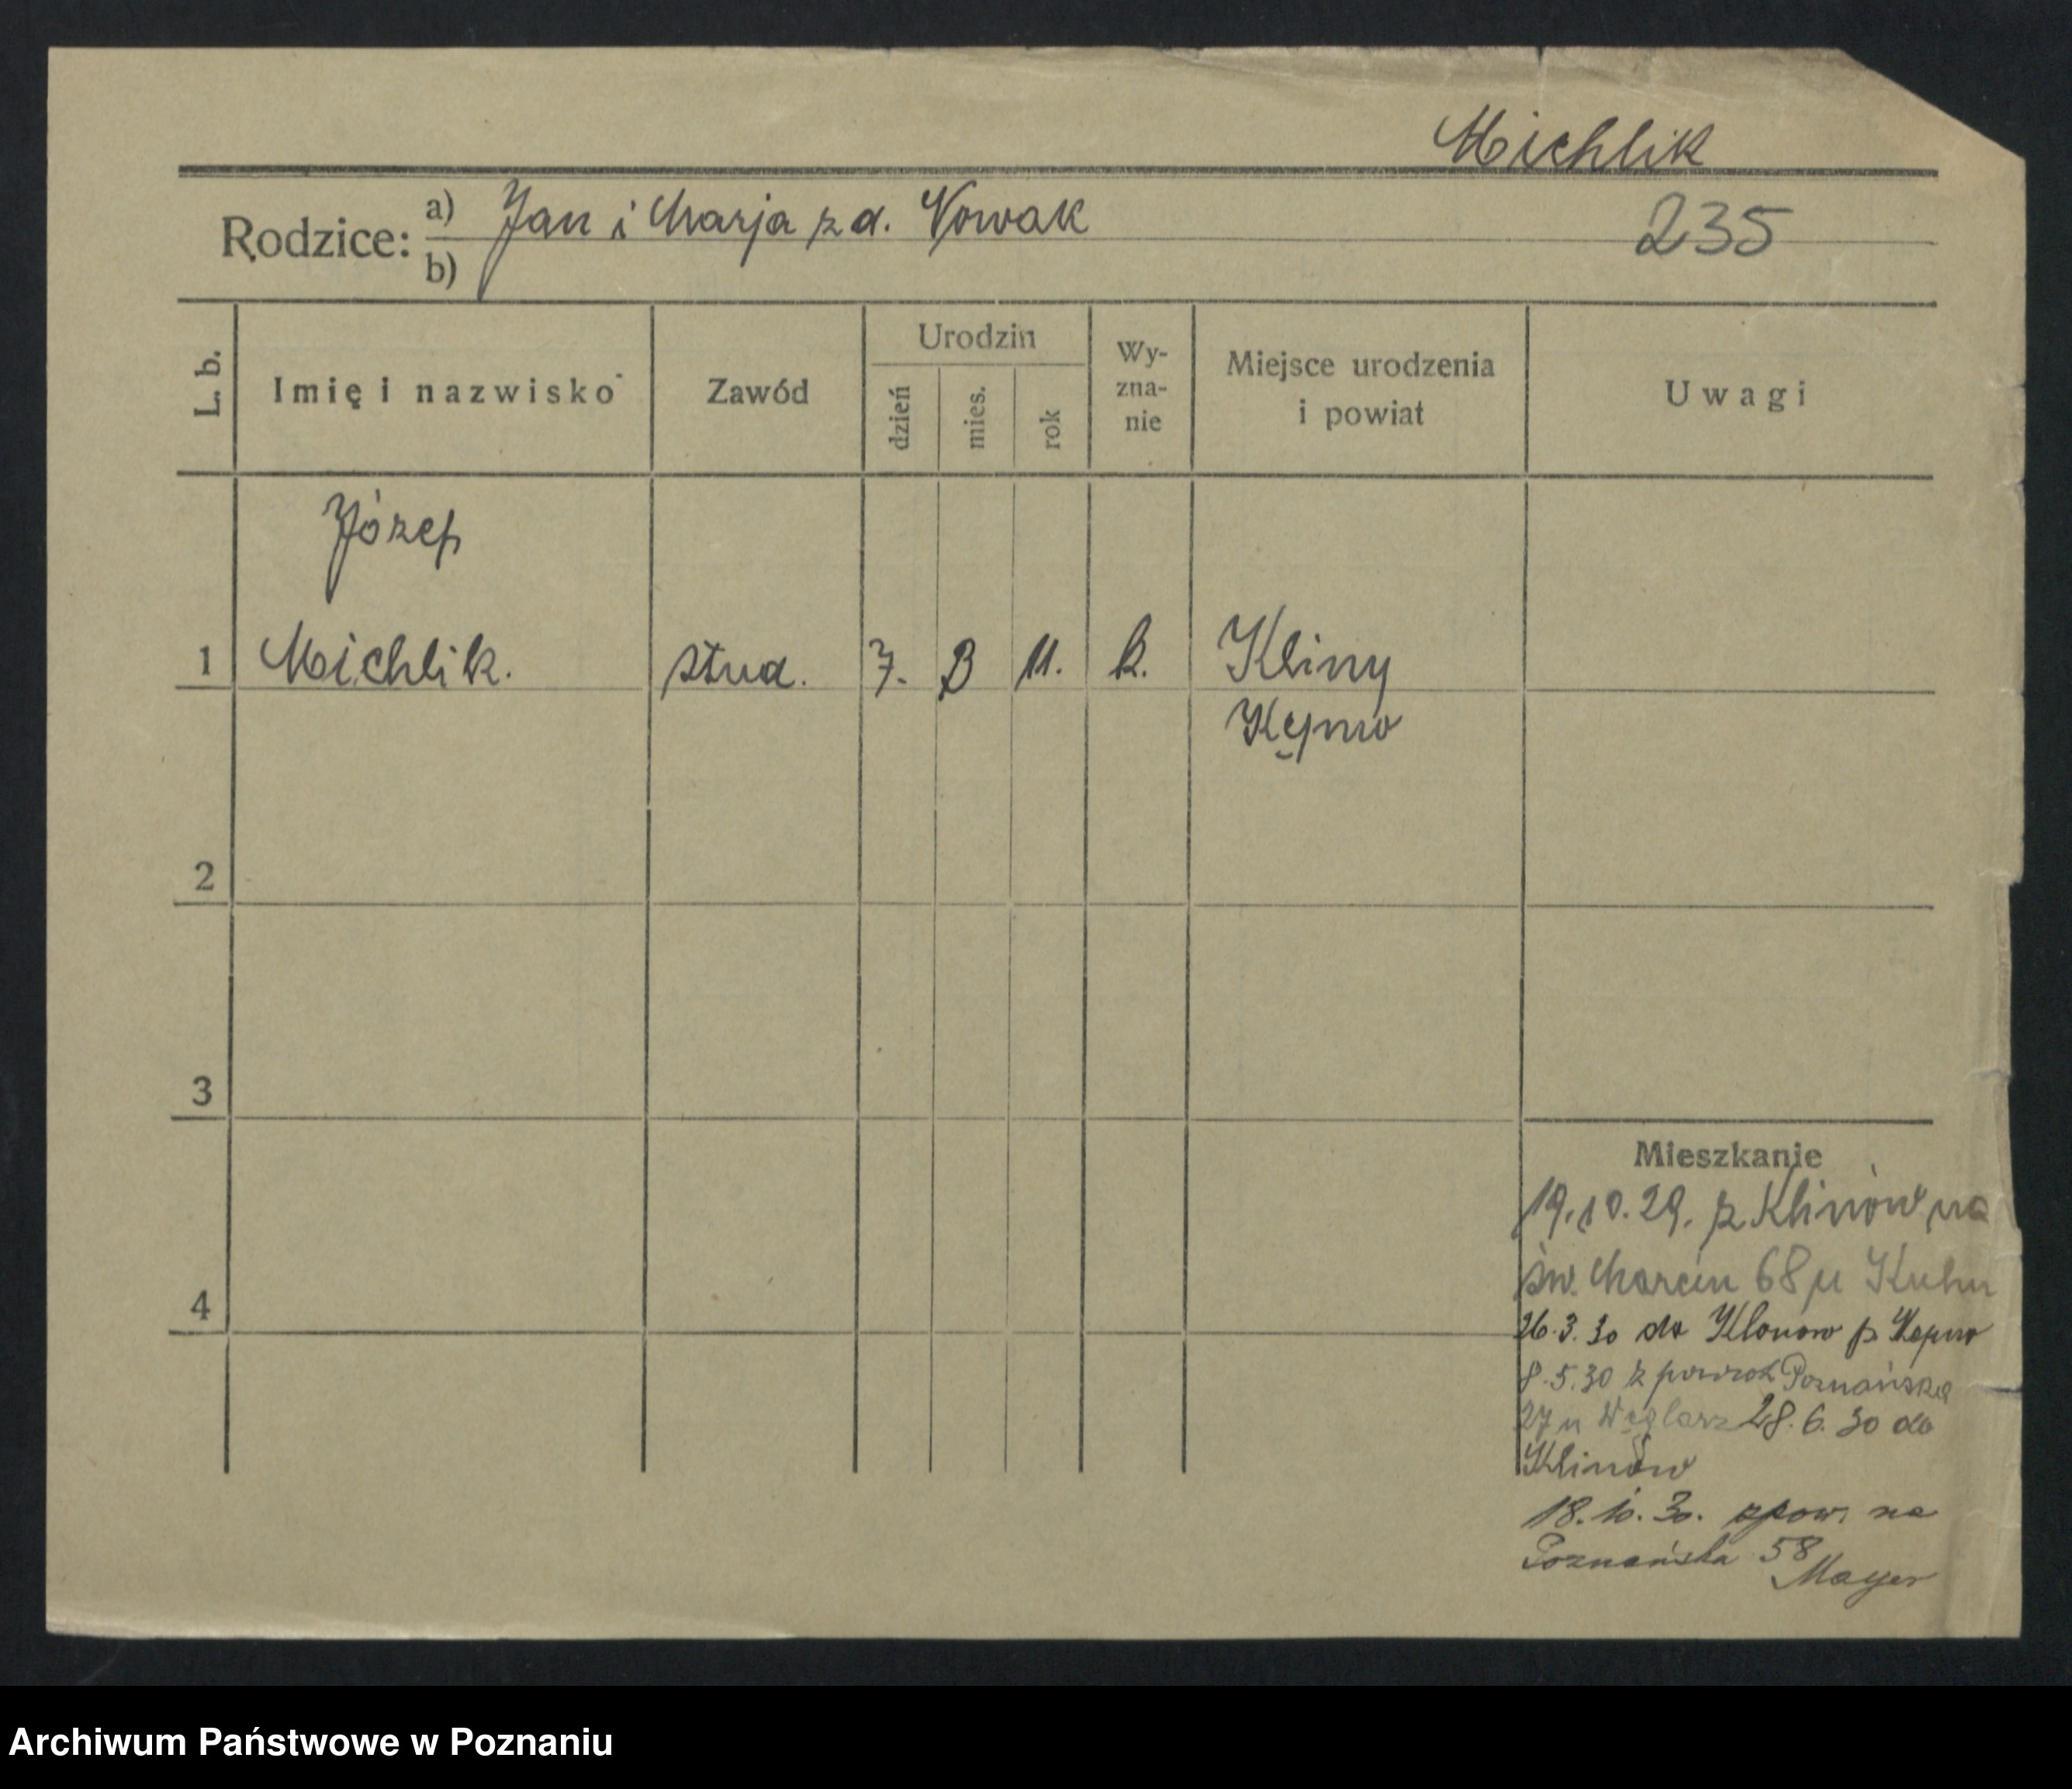 Michlik
Rodzice: a) Jan i Marja z d. Nowak
235
b)
L. b.
Imię i nazwisko
Zawód
Urodzin
dzień
mies.
rok
Wy-
zna-
nie
Miejsce urodzenia
i powiat
Uwagi
Józef
1 Michlik. stud. 7. 3 11. k. Kliny
Kępno
2
3
Mieszkanie
19.10.29. z Klinów na
św. Marcin 68 u Kuhn
4
26.3.30 do Klonów p Kępno
8.5.30 z powrot Poznańska
27 u Węglarz 28.6.30 do
Klinów
18.10.30. zpow. na
Poznańska 58
Mayer
Archiwum Państwowe w Poznaniu